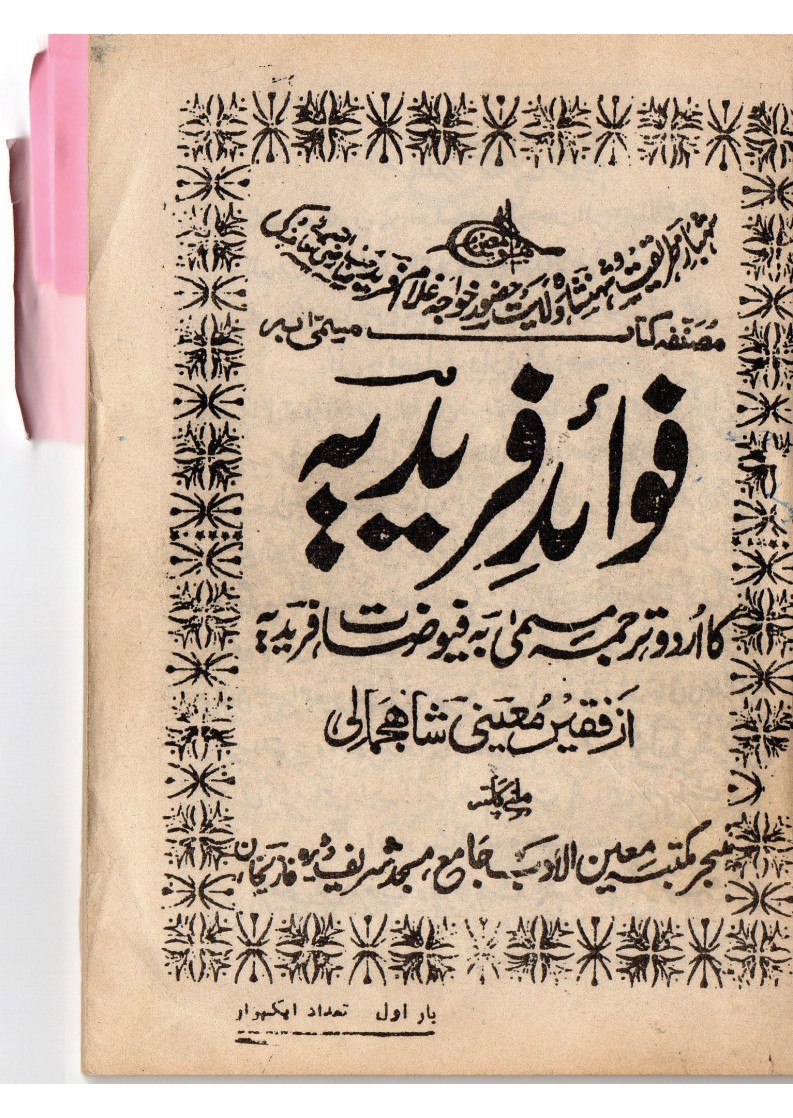 ھوالمعین
شہباز طریقت و شہنشاہ ولایت حضور خواجہ غلام فرید رضی اللہ تعالیٰ عنہ کی
مصنفہ کتاب مسمیٰ بہ
فوائدِ فریدیہ
کا اُردو ترجمہ مسمیٰ بہ فیوضات فریدیہ
از فقیر مُعینی شاہجمالی
ملنے کا پتہ
منیجر مکتبہ معین الادب جامع مسجد شریف ڈیرہ غازیخان
بار اول تعداد ایکہزار